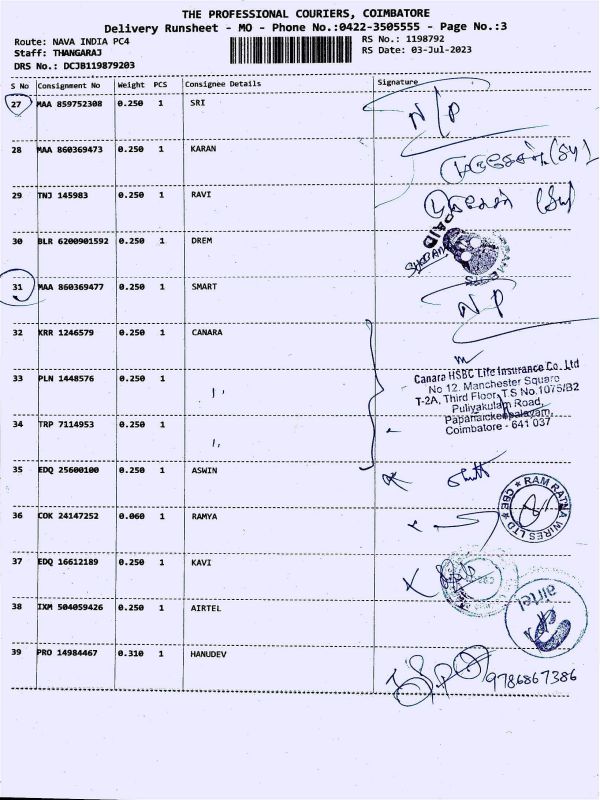 THE PROFESSIONAL COURIERS, COIMBATORE
Delivery Runsheet - MO - Phone No.:0422-3505555 - Page No.:3
Route: NAVA INDIA PC4
RS No.: 1198792
Staff: THANGARAJ
RS Date: 03-Jul-2023
DRS No.: DCJB119879203
S No Consignment No Weight PCS Consignee Details Signature
27 MAA 859752308 0.250 1 SRI N/P
28 MAA 860369473 0.250 1 KARAN
29 TNJ 145983 0.250 1 RAVI
30 BLR 6200901592 0.250 1 DREM PAID
31 MAA 860369477 0.250 1 SMART N P
32 KRR 1246579 0.250 1 CANARA
33 PLN 1448576 0.250 1 "
34 TRP 7114953 0.250 1 "
Canara HSBC Life Insurance Co. Ltd
No 12. Manchester Square
T-2A, Third Floor, T.S No.1075/B2
Puliyakulam Road,
Papanaickenpalayam,
Coimbatore - 641 037
35 EDQ 25600100 0.250 1 ASWIN
36 COK 24147252 0.060 1 RAMYA
RAM RATNA WIRES LTD * CBE *
37 EDQ 16612189 0.250 1 KAVI
38 IXM 504059426 0.250 1 AIRTEL
airtel
39 PRO 14984467 0.310 1 HANUDEV
9786867386